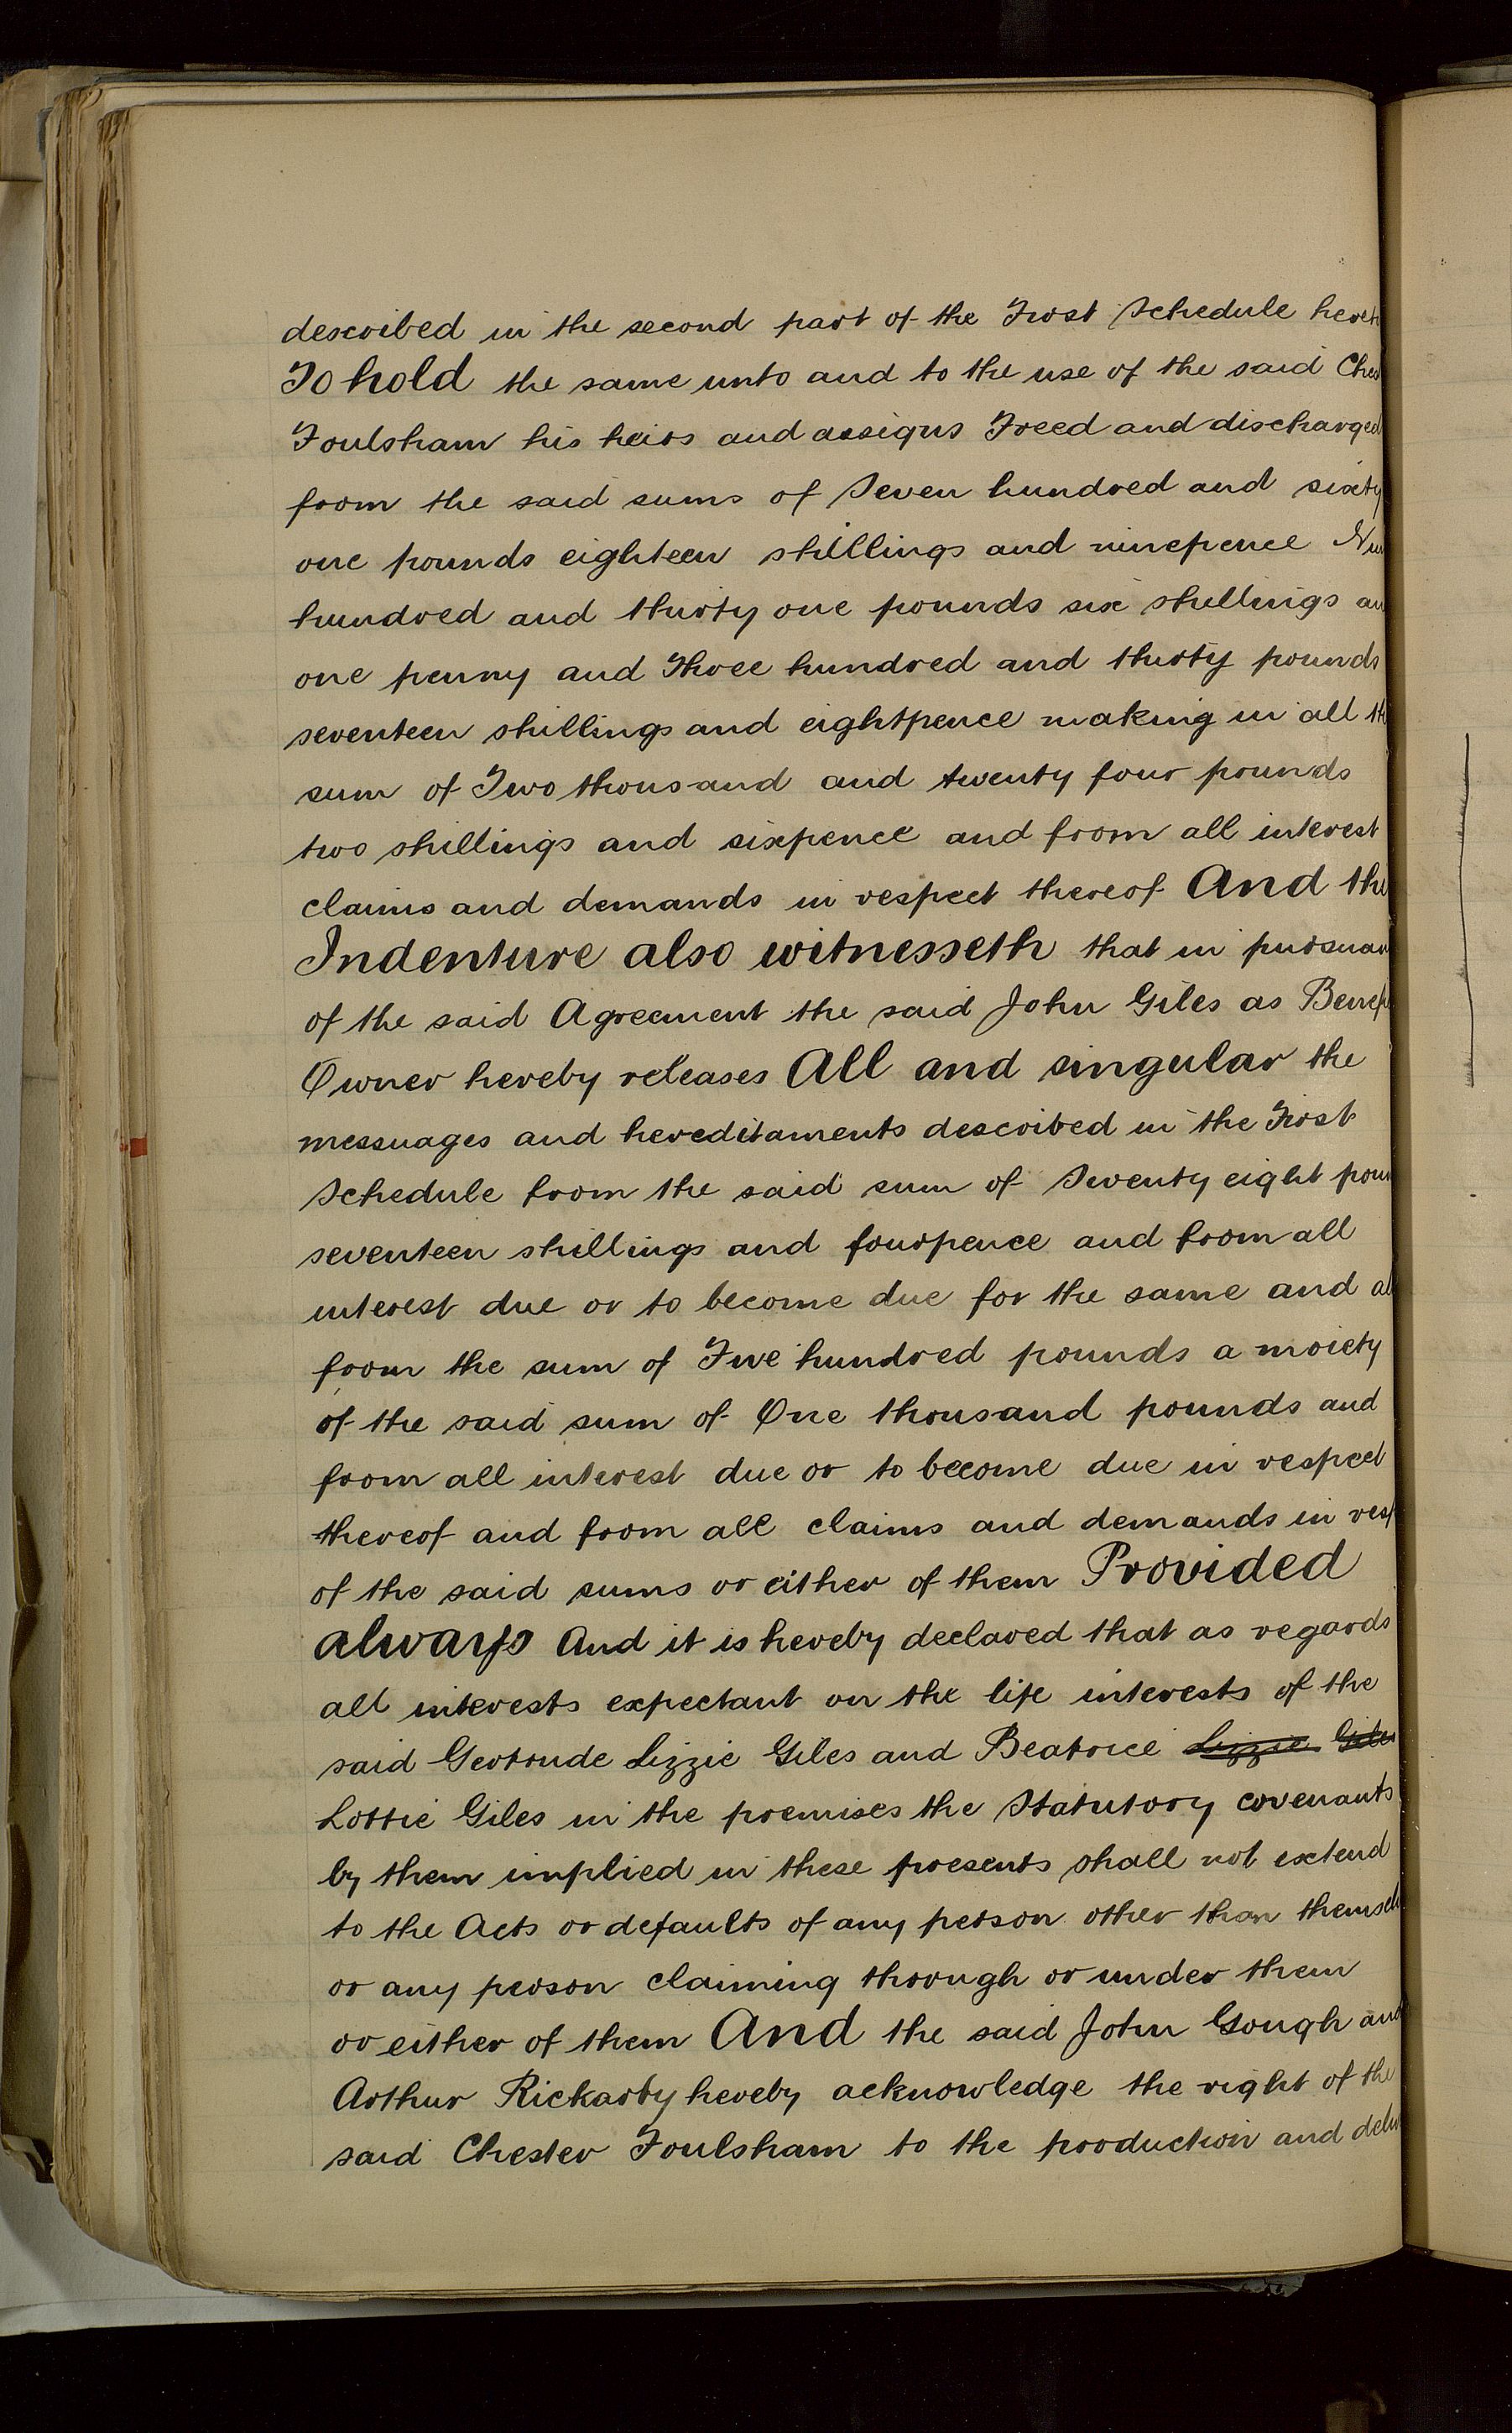 described in the second part of the First Schedule heret
To hold the same unto and to the use of the said Ches
Foulsham his heirs and assigns Freed and discharged
from the said sums of Seven hundred and sixty
one pounds eighteen shillings and ninepence Nin
hundred and thirty one pounds six shillings an
one penny and Three hundred and thirty pounds
seventeen shillings and eightpence making in all th
sum of Two thousand and twenty four pounds
two shillings and sixpence and from all interest
claims and demands in respect thereof And thi
Indenture also witnesseth that in pursuan
of the said Agreement the said John Giles as Benefi
Owner hereby releases All and singular the
messuages and hereditaments described in the First
Schedule from the said sum of Seventy eight poun
seventeen shillings and fourpence and from all
interest due or to become due for the same and al
from the sum of Five hundred pounds a moiety
of the said sum of One thousand pounds and
from all interest due or to become due in respect
thereof and from all claims and demands in resp
of the said sums or either of them Provided
always And it is hereby declared that as regards
all interests expectant on the life interests of the
said Gertrude Lizzie Giles and Beatrice Lizzie Giles
Lottie Giles in the premises the Statutory covenants
by them implied in these presents shall not extend
to the Acts or defaults of any person other than themsel
or any person claiming through or under them
or either of them And the said John Gough and
Arthur Rickarby hereby acknowledge the right of the
said Chester Foulsham to the production and deliv